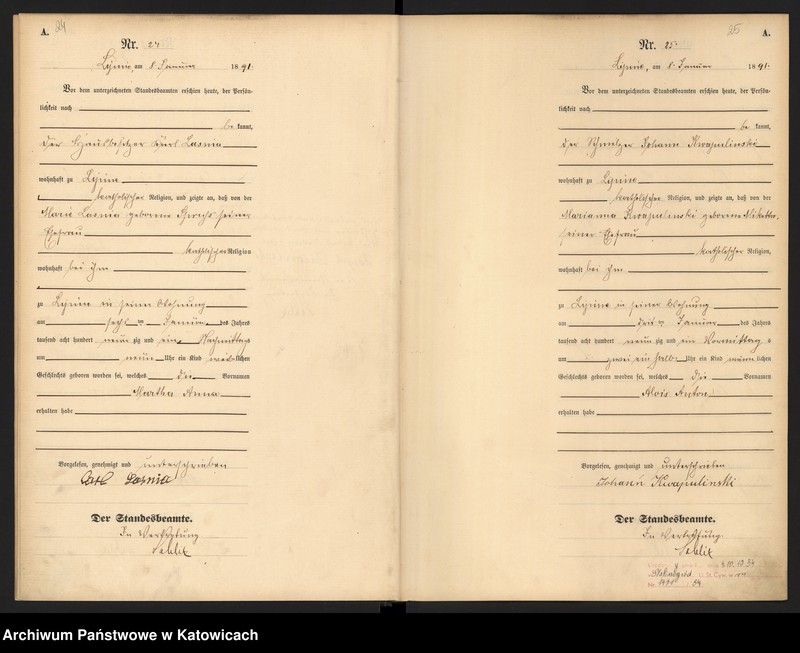 A. 24
Nr. 24
Lipine, am 8. Januar 1891.
Vor dem unterzeichneten Standesbeamten erschien heute, der Persön-
lichkeit nach
be kannt,
der Hausbesitzer Karl Lasnia
wohnhaft zu Lipine
katholischer Religion, und zeigte an, daß von der
Marie Lasnia geborene seiner
Ehefrau
katholischer Religion
wohnhaft bei ihm
zu Lipine in seiner Wohnung
am sechsten Januar des Jahres
tausend acht hundert neun zig und ein Nachmittags
um neun Uhr ein Kind weiblichen
Geschlechts geboren worden sei, welches die Vornamen
Martha Anna
erhalten habe
Vorgelesen, genehmigt und unterschrieben
Carl Lasnia
Der Standesbeamte.
In Vertretung
25 A.
Nr. 25.
Lipine, am 8. Januar 1891.
Vor dem unterzeichneten Standesbeamten erschien heute, der Persön-
lichkeit nach
be kannt,
der Schmelzer Johann Kwapulinski
wohnhaft zu Lipine
katholischer Religion, und zeigte an, daß von der
Marianna Kwapulinski geborene
seiner Ehefrau
katholischer Religion,
wohnhaft bei ihm
zu Lipine in seiner Wohnung
am Januar des Jahres
tausend acht hundert neun zig und ein Vormittag s
um zwei ein halb Uhr ein Kind männ lichen
Geschlechts geboren worden sei, welches die Vornamen
Alois Anton
erhalten habe
Vorgelesen, genehmigt und unterschrieben
Johann Kwapulinski
Der Standesbeamte.
In Vertretung
Archiwum Państwowe w Katowicach